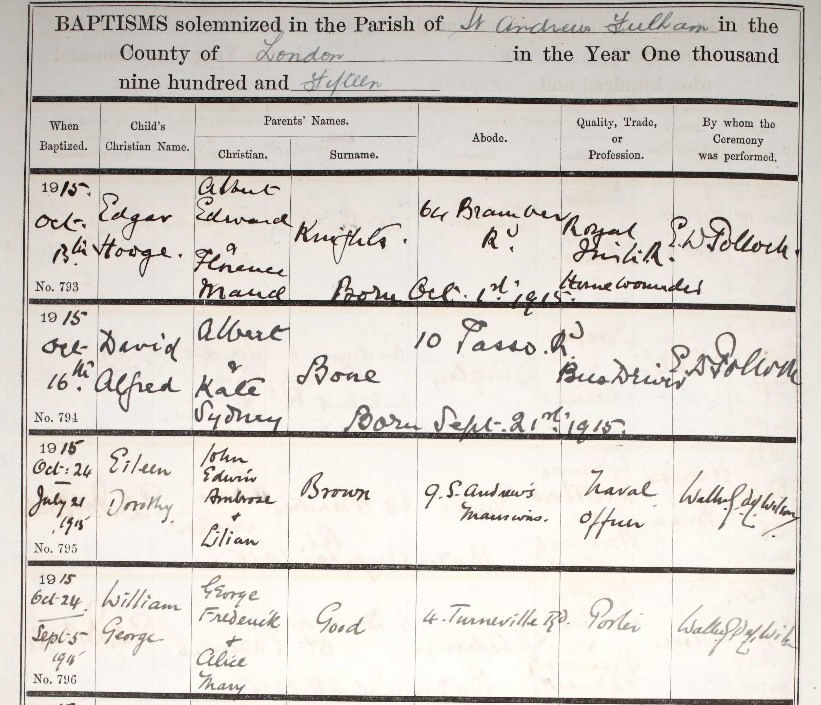 BAPTISMS solemnized in the Parish of St Andrew Fulham in the
County of London in the Year One thousand
nine hundred and Fifteen
When Baptized. Child's Christian Name. Parents' Names. Christian. Surname. Abode. Quality, Trade, or Profession. By whom the Ceremony was performed.
1915. Oct. 13th No. 793
Edgar Hooge.
Albert Edward & Florence Maud
Knights.
64 Bramber Rd
Royal R. Home wounded
E.D. Pollock.
Born Oct. 1st. 1915.
1915 Oct 16th. No. 794
David Alfred
Albert & Kate Sydney
Bone
10 Tasso Rd
Bus Driver
E D Pollock
Born Sept. 21st. 1915.
1915 Oct: 24 July 21 1915 No. 795
Eileen Dorothy
John Edwin Ambrose + Lilian
Brown
9. S. Andrew's Mansions.
Naval Officer
1915 Oct 24. Sept 5 1915 No. 796
William George
George Frederick + Alice Mary
Good
4. Turneville Rd.
Porter